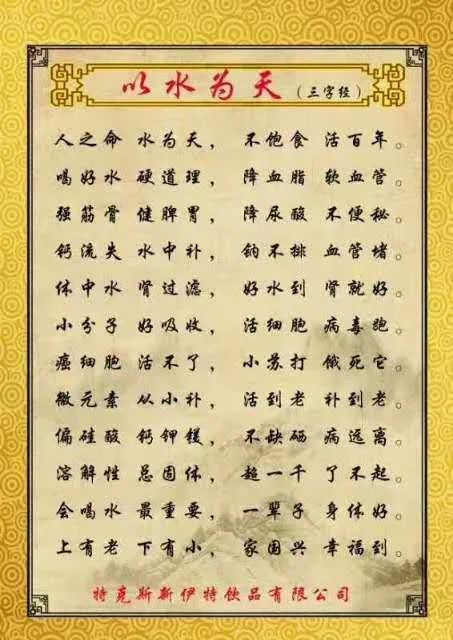 以水为天（三字经）
人之命 水为天， 不饱食 活百年。
喝好水 硬道理， 降血脂 软血管。
强筋骨 健脾胃， 降尿酸 不便秘。
钙流失 水中补， 钠不排 血管堵。
体中水 肾过滤， 好水到 肾就好。
小分子 好吸收， 活细胞 病毒跑。
癌细胞 活不了， 小苏打 饿死它。
微元素 从小补， 活到老 补到老。
偏硅酸 钙钾镁， 不缺硒 病远离。
溶解性 总固体， 超一千 了不起。
会喝水 最重要， 一辈子 身体好。
上有老 下有小， 家国兴 幸福到。
特克斯新伊特饮品有限公司